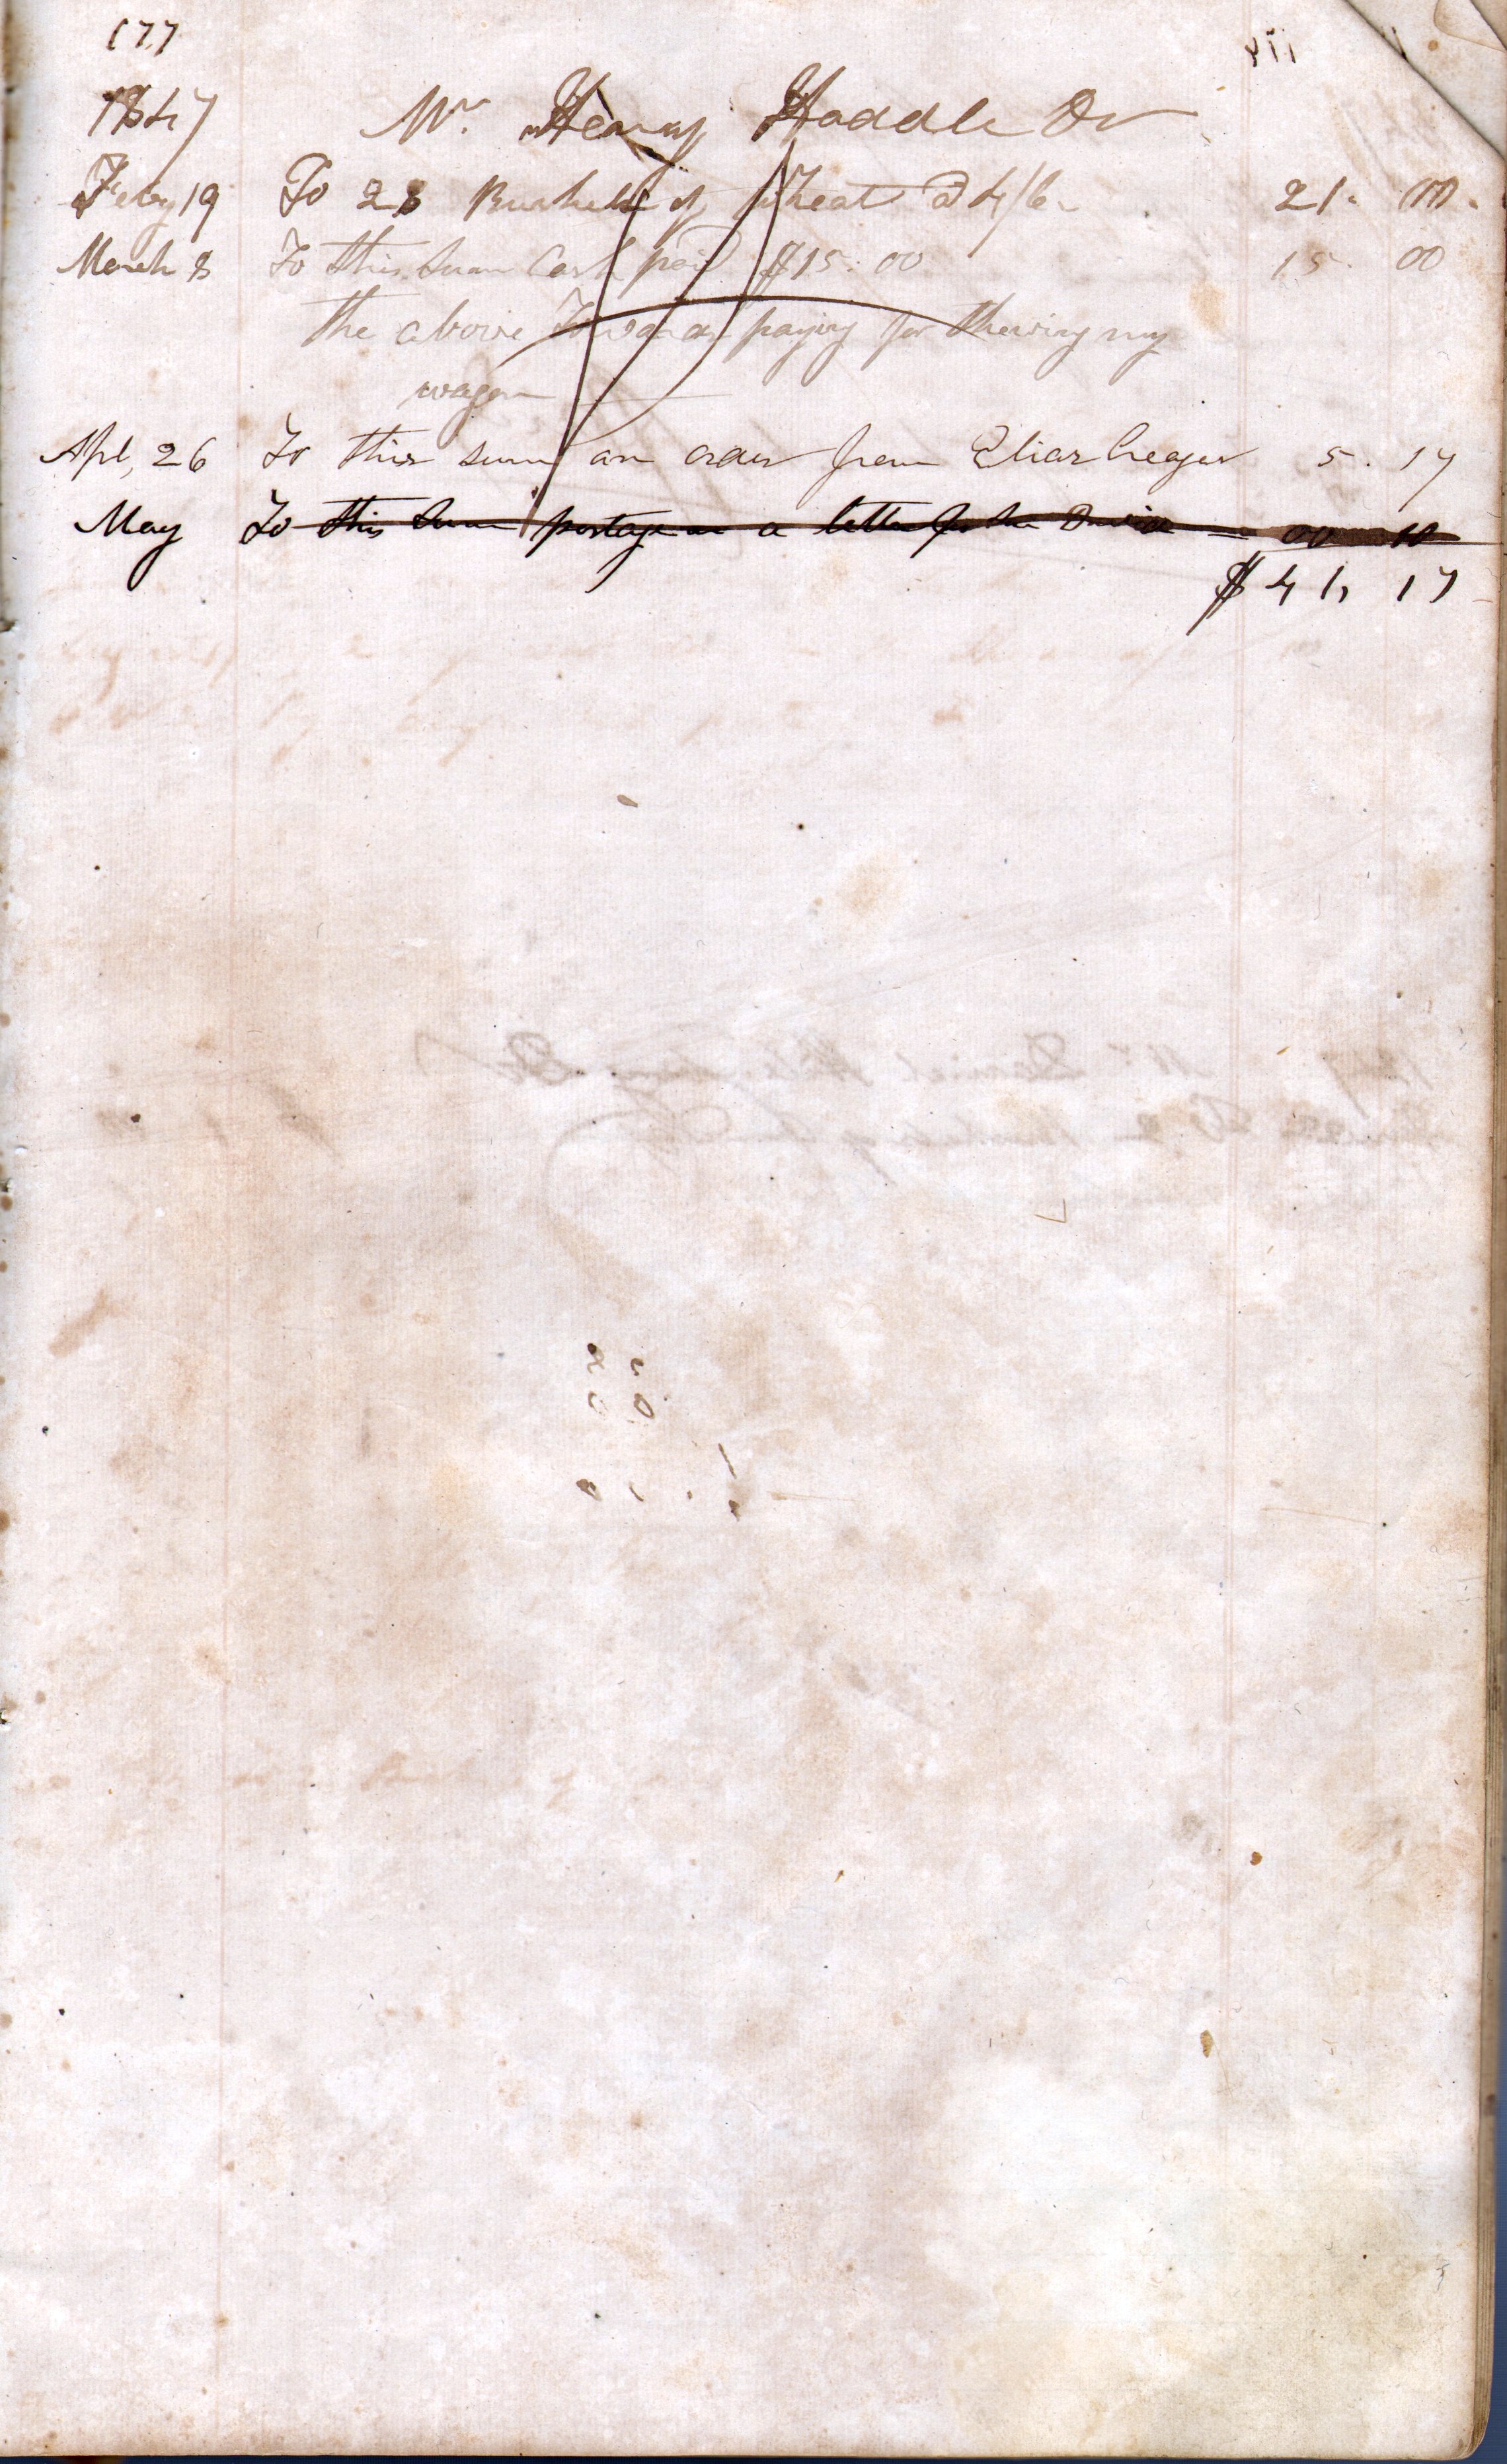 177
1847 Mr. Henry Haddle Dr
Febry 19 To 28 Bushels of Wheat @ 4/6 21. 00.
March 8 To this Sum Cash paid $15.00 15. 00
the above Toward paying for thewing my
wagon
Apl, 26 To this sum an order from Elias 5. 17
May To this Sum postage on a letter for 00 10
$41, 17